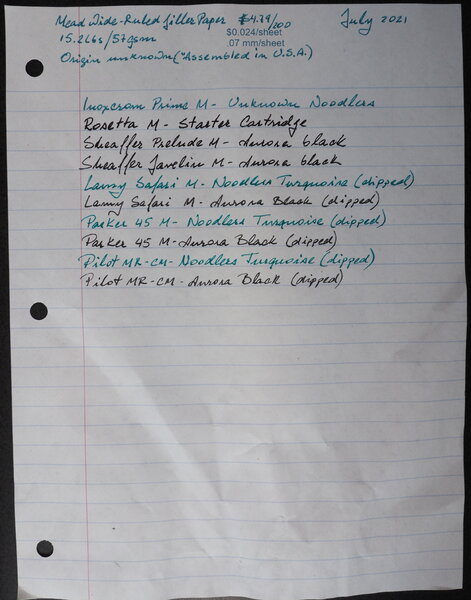 Mead Wide-Ruled filler Paper $4.79/200 July 2021
$0.024/sheet
15.2Lbs/57gsm
.07 mm/sheet
Origin unknown ("Assembled in U.S.A.)
Inoxcrom Prime M - Unknown Noodlers
Rosetta M - Starter Cartridge
Sheaffer Prelude M - Aurora black
Sheaffer Javelin M - Aurora black
Lamy Safari M - Noodlers Turquoise (dipped)
Lamy Safari M - Aurora Black (dipped)
Parker 45 M - Noodlers Turquoise (dipped)
Parker 45 M - Aurora Black (dipped)
Pilot MR-CM - Noodlers Turquoise (dipped)
Pilot MR-CM - Aurora Black (dipped)